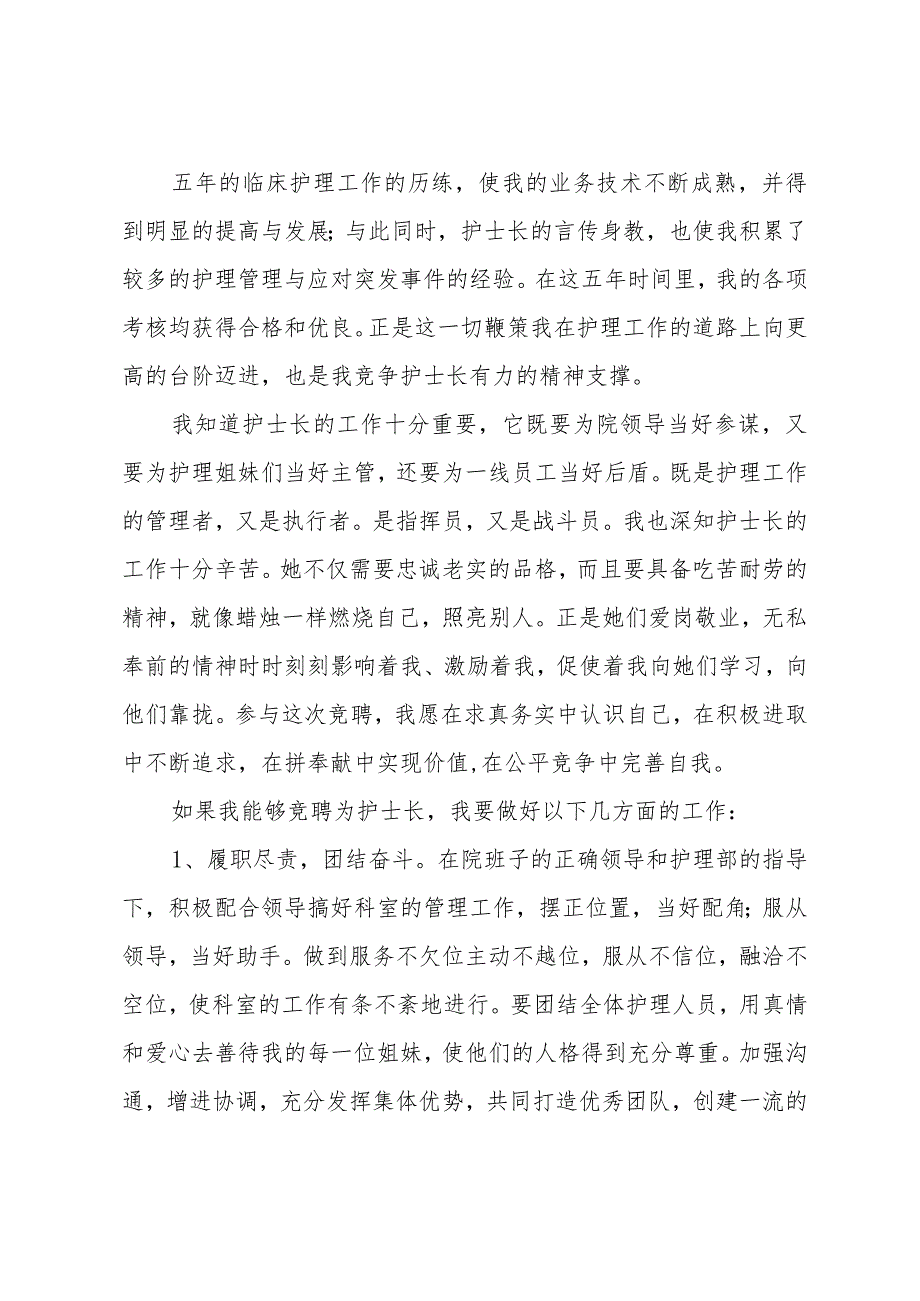 五年的临床护理工作的历练，使我的业务技术不断成熟，并得
到明显的提高与发展；与此同时，护士长的言传身教，也使我积累了
较多的护理管理与应对突发事件的经验。在这五年时间里，我的各项
考核均获得合格和优良。正是这一切鞭策我在护理工作的道路上向更
高的台阶迈进，也是我竞争护士长有力的精神支撑。
我知道护士长的工作十分重要，它既要为院领导当好参谋，又
要为护理姐妹们当好主管，还要为一线员工当好后盾。既是护理工作
的管理者，又是执行者。是指挥员，又是战斗员。我也深知护士长的
工作十分辛苦。她不仅需要忠诚老实的品格，而且要具备吃苦耐劳的
精神，就像蜡烛一样燃烧自己，照亮别人。正是她们爱岗敬业，无私
奉前的情神时时刻刻影响着我、激励着我，促使着我向她们学习，向
他们靠拢。参与这次竞聘，我愿在求真务实中认识自己，在积极进取
中不断追求，在拼奉献中实现价值,在公平竞争中完善自我。
如果我能够竞聘为护士长，我要做好以下几方面的工作：
1、履职尽责，团结奋斗。在院班子的正确领导和护理部的指导
下，积极配合领导搞好科室的管理工作，摆正位置，当好配角；服从
领导，当好助手。做到服务不欠位主动不越位，服从不信位，融洽不
空位，使科室的工作有条不紊地进行。要团结全体护理人员，用真情
和爱心去善待我的每一位姐妹，使他们的人格得到充分尊重。加强沟
通，增进协调，充分发挥集体优势，共同打造优秀团队，创建一流的